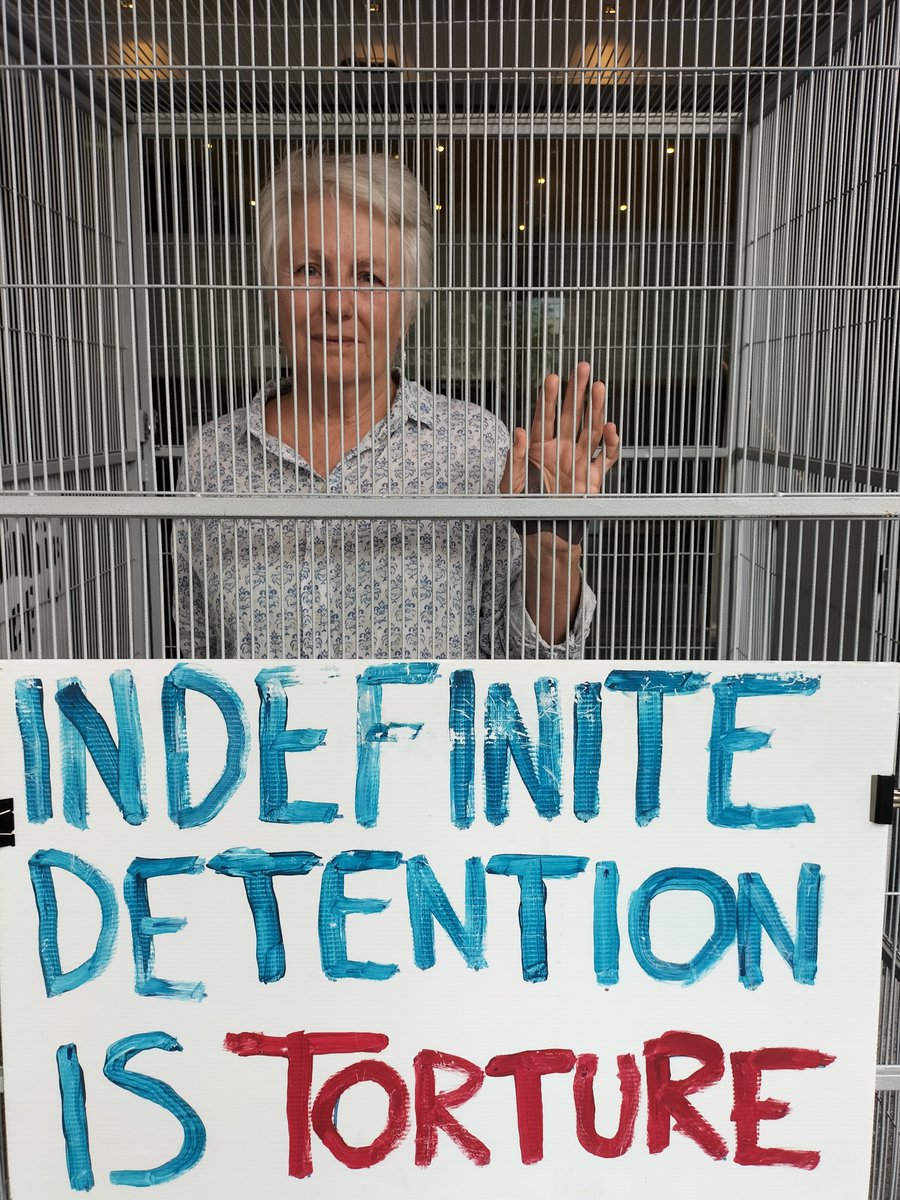 INDEFINITE
DETENTION
IS TORTURE